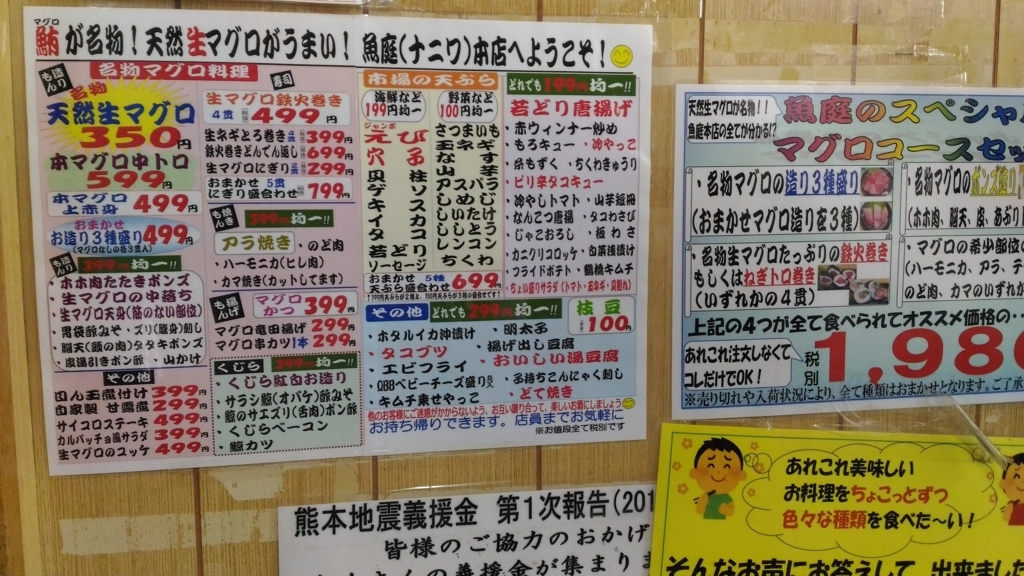 マグロ
鮪が名物！天然生マグロがうまい！ 魚庭(ナニワ)本店へようこそ！
名物マグロ料理
名物
天然生マグロ
350円
本マグロ中トロ
599円
本マグロ
上赤身 499円
おまかせ
お造り3種盛り499円
(マグロなしの色々3種入)
399円均一!!
・ホホ肉たたきポンズ
・生マグロの中落ち
・生マグロ天身(筋のない部位)
・胃袋酢みそ・ズリ(腹身)刺し
・脳天(頭の肉)タタキポンズ
・皮湯引きポン酢 ・山かけ
その他
のん玉煮付け 399円
自家製 甘露煮 299円
サイコロステーキ 499円
カルパッチョ風サラダ 399円
生マグロのユッケ 499円
寿司
生マグロ鉄火巻き
4貫 499円
生ネギとろ巻き 399円
鉄火巻きどんでん返し 699円
生マグロにぎり 2貫 299円
おまかせ 5貫
にぎり盛合わせ 799円
399円均一!!
アラ焼き ・のど肉
・ハーモニカ(ヒレ肉)
・カマ焼き(カットしてます)
マグロ
かつ 399円
マグロ竜田揚げ 299円
マグロ串カツ 1本 299円
くじら 399円均一!!
・くじら紅白お造り
・サラシ鯨(オバケ)酢みそ
・鯨のサエズリ(舌肉)ポン酢
・くじらベーコン
・鯨カツ
市場の天ぷら
海鮮など
199円均一
ジャンボ
えび
穴子
貝柱
ゲソ
キス
イカ
タコ
若どり
ソーセージ
野菜など
100円均一
さつまいも
玉ネギ
なす
山芋
アスパラ
しめじ
しいたけ
ししとう
レンコン
ちくわ
おまかせ 5種
天ぷら盛合わせ 699円
どれでも199円均一!!
若どり唐揚げ
・赤ウィンナー炒め
・もろキュー ・冷やっこ
・糸もずく ・ちくわきゅうり
・ピリ辛タコキュー
・冷やしトマト ・山芋短冊
・なんこつ唐揚 ・タコわさび
・じゃこおろし ・板わさ
・カニクリコロッケ ・白菜浅漬け
・フライドポテト ・鶴橋キムチ
その他 どれでも299円均一!!
枝豆
100円
・ホタルイカ沖漬け ・明太子
・タコブツ ・揚げ出し豆腐
・エビフライ ・おいしい湯豆腐
・QBBベビーチーズ盛り ・子持ちこんにゃく刺し
・キムチ乗せやっこ ・どて焼き
他のお客様にご迷惑がかからないよう、お互い譲り合って、楽しいお酒にしましょう
お持ち帰りできます。店員までお気軽に
※お値段全て税別です
天然生マグロが名物！！
魚庭本店の全てが分かる!?
魚庭のスペシャ
マグロコースセッ
・名物マグロの造り3種盛り
(おまかせマグロ造りを3種)
・名物マグロのポンズ造り
(ホホ肉、脳天、皮、あぶり
・名物生マグロたっぷりの鉄火巻き
もしくはねぎトロ巻き
(いずれかの4貫)
・マグロの希少部位の
(ハーモニカ、アラ、テ
のど肉、カマのいずれか
上記の4つが全て食べられてオススメ価格の…
あれこれ注文しなくて
コレだけでOK！
税別 1,980
※売り切れや入荷状況により、全て種類はおまかせとなります。ご了承
あれこれ美味しい
お料理をちょこっとずつ
色々な種類を食べた〜い！
そんなお声にお答えして、出来ました
熊本地震義援金 第1次報告(201
皆様のご協力のおかげ
の義援金が集まりま